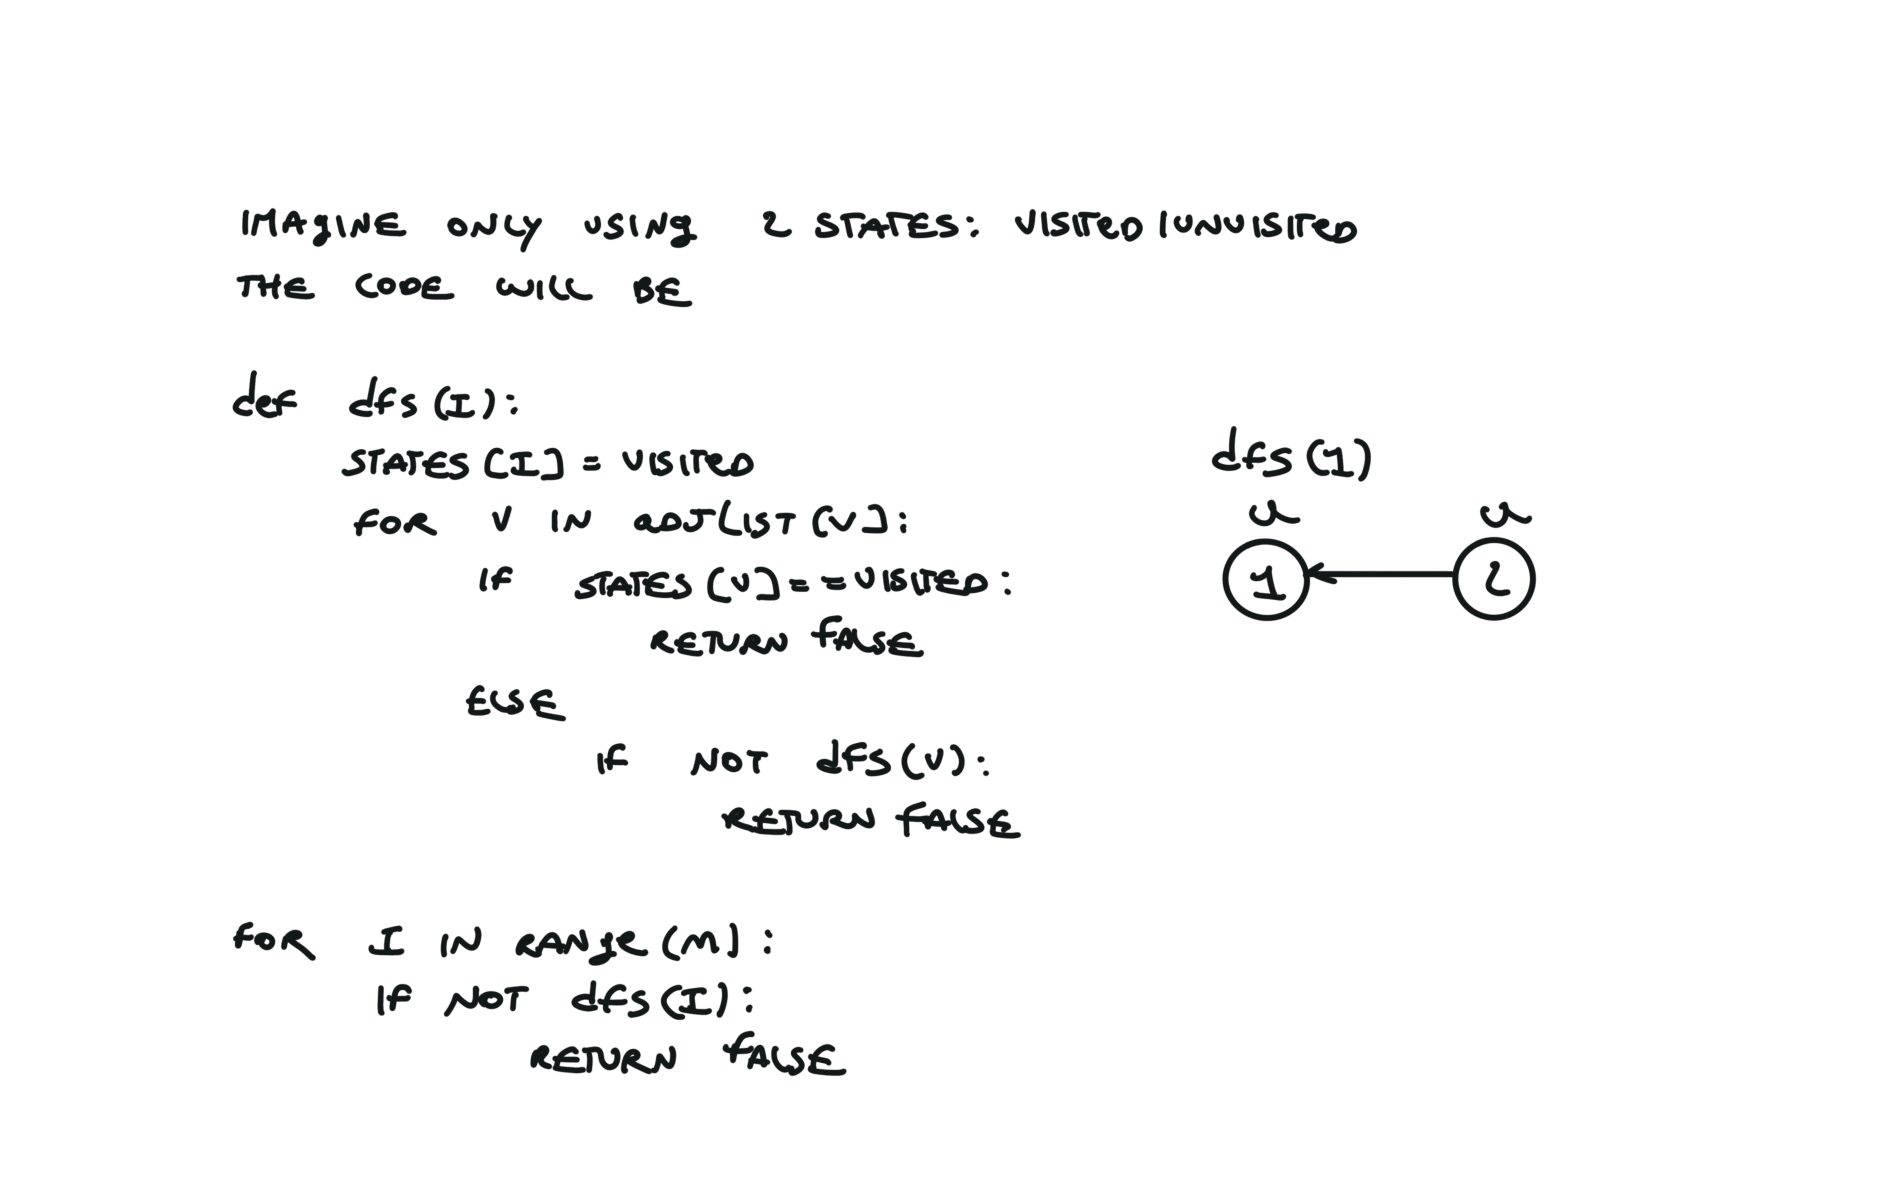 IMAGINE ONLY USING 2 STATES: VISITED / UNVISITED
THE CODE WILL BE
def dfs (I):
STATES [I] = VISITED
FOR V IN ADJLIST [V]:
IF STATES [V] == VISITED:
RETURN FALSE
ELSE
IF NOT dfs (V):
RETURN FALSE
FOR I IN RANGE (M):
IF NOT dfs (I):
RETURN FALSE
dfs (1)
u u
1 2